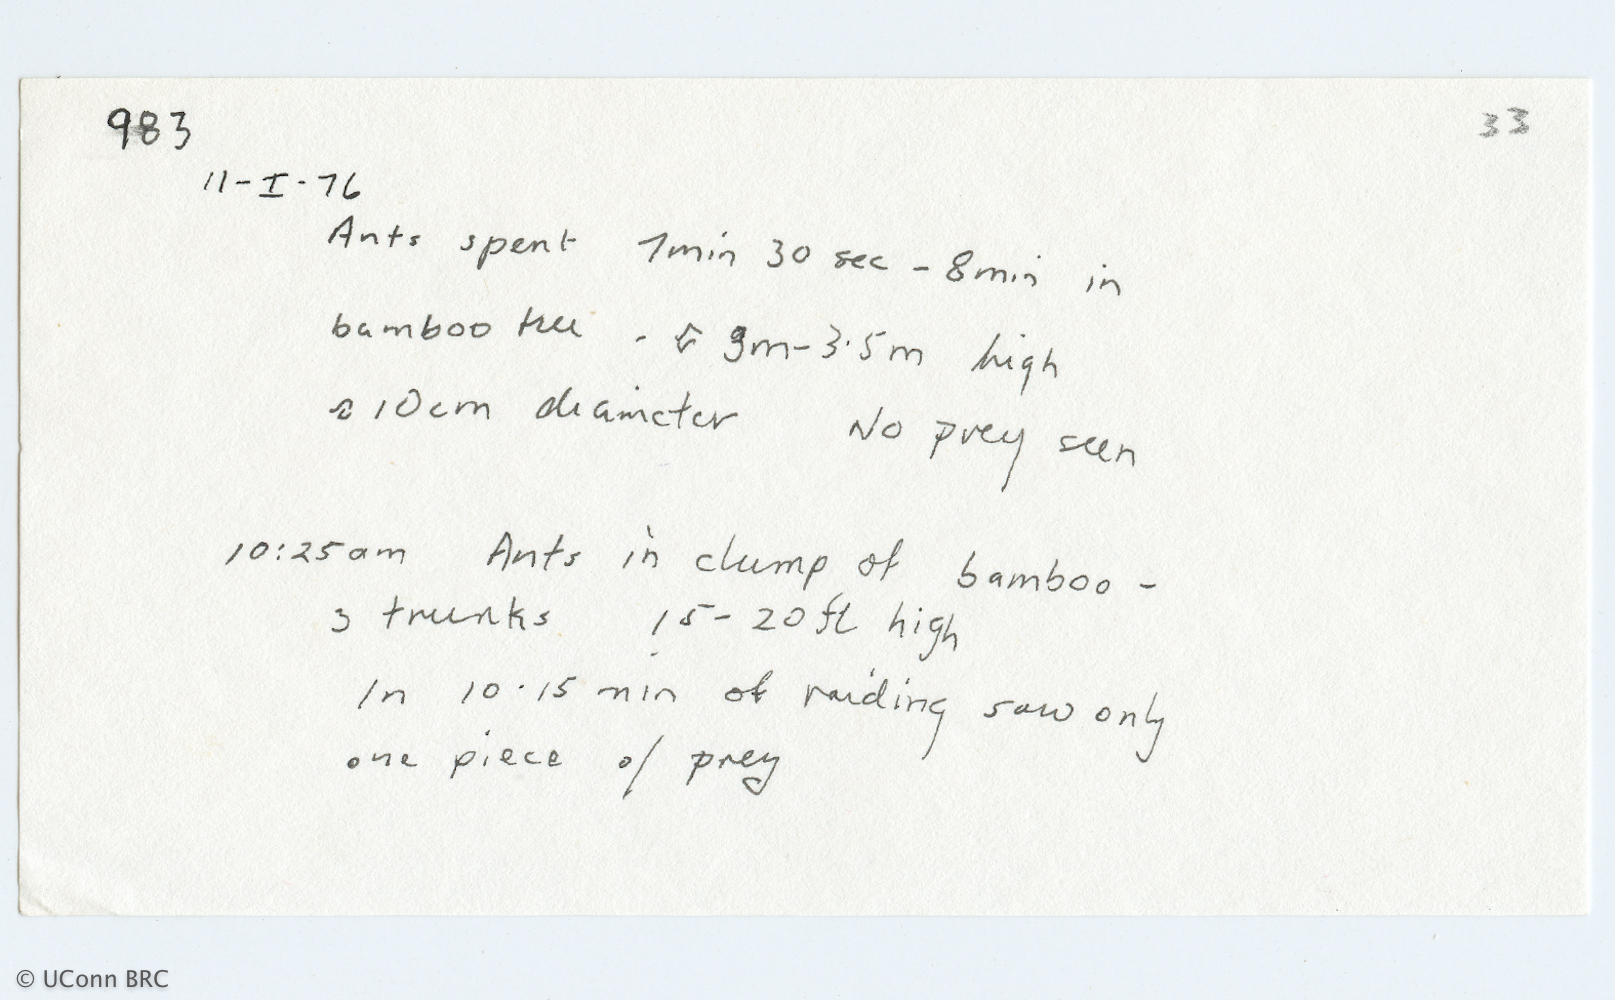 983 33
11-I-76
Ants spent 7min 30 sec - 8min in
bamboo tree - 3m-3.5m high
≈ 10cm diameter No prey seen
10:25am Ants in clump of bamboo -
3 trunks 15-20ft high
In 10-15 min of raiding saw only
one piece of prey
© UConn BRC